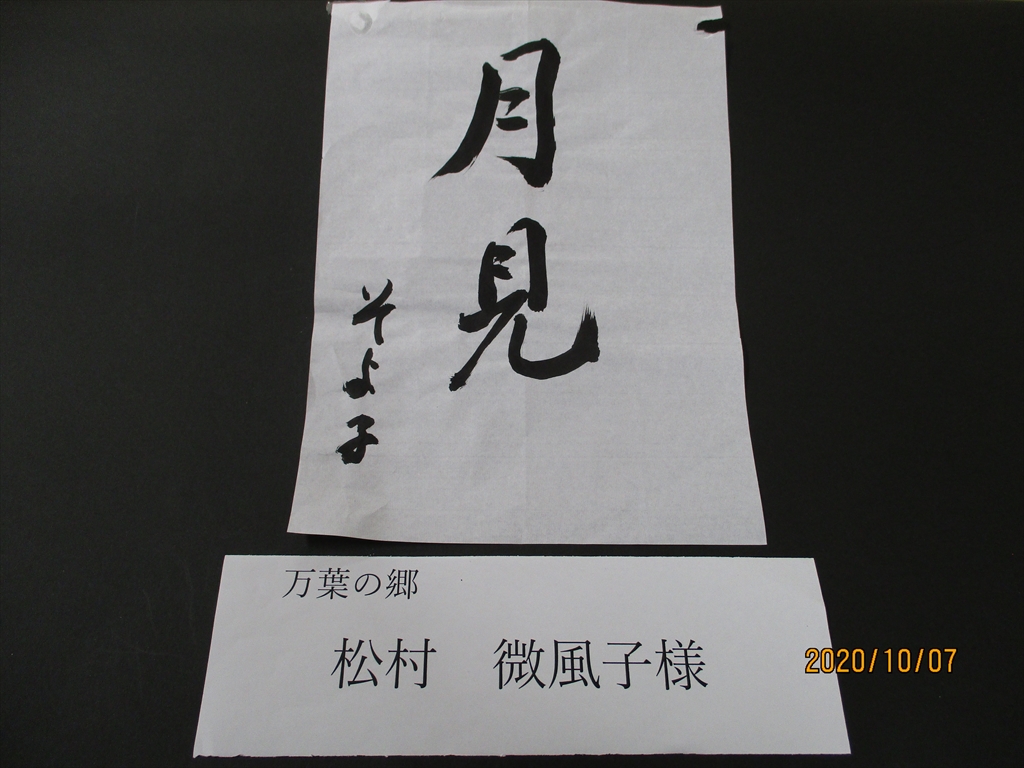 月見
そよ子
万葉の郷
松村　微風子様
2020/10/07